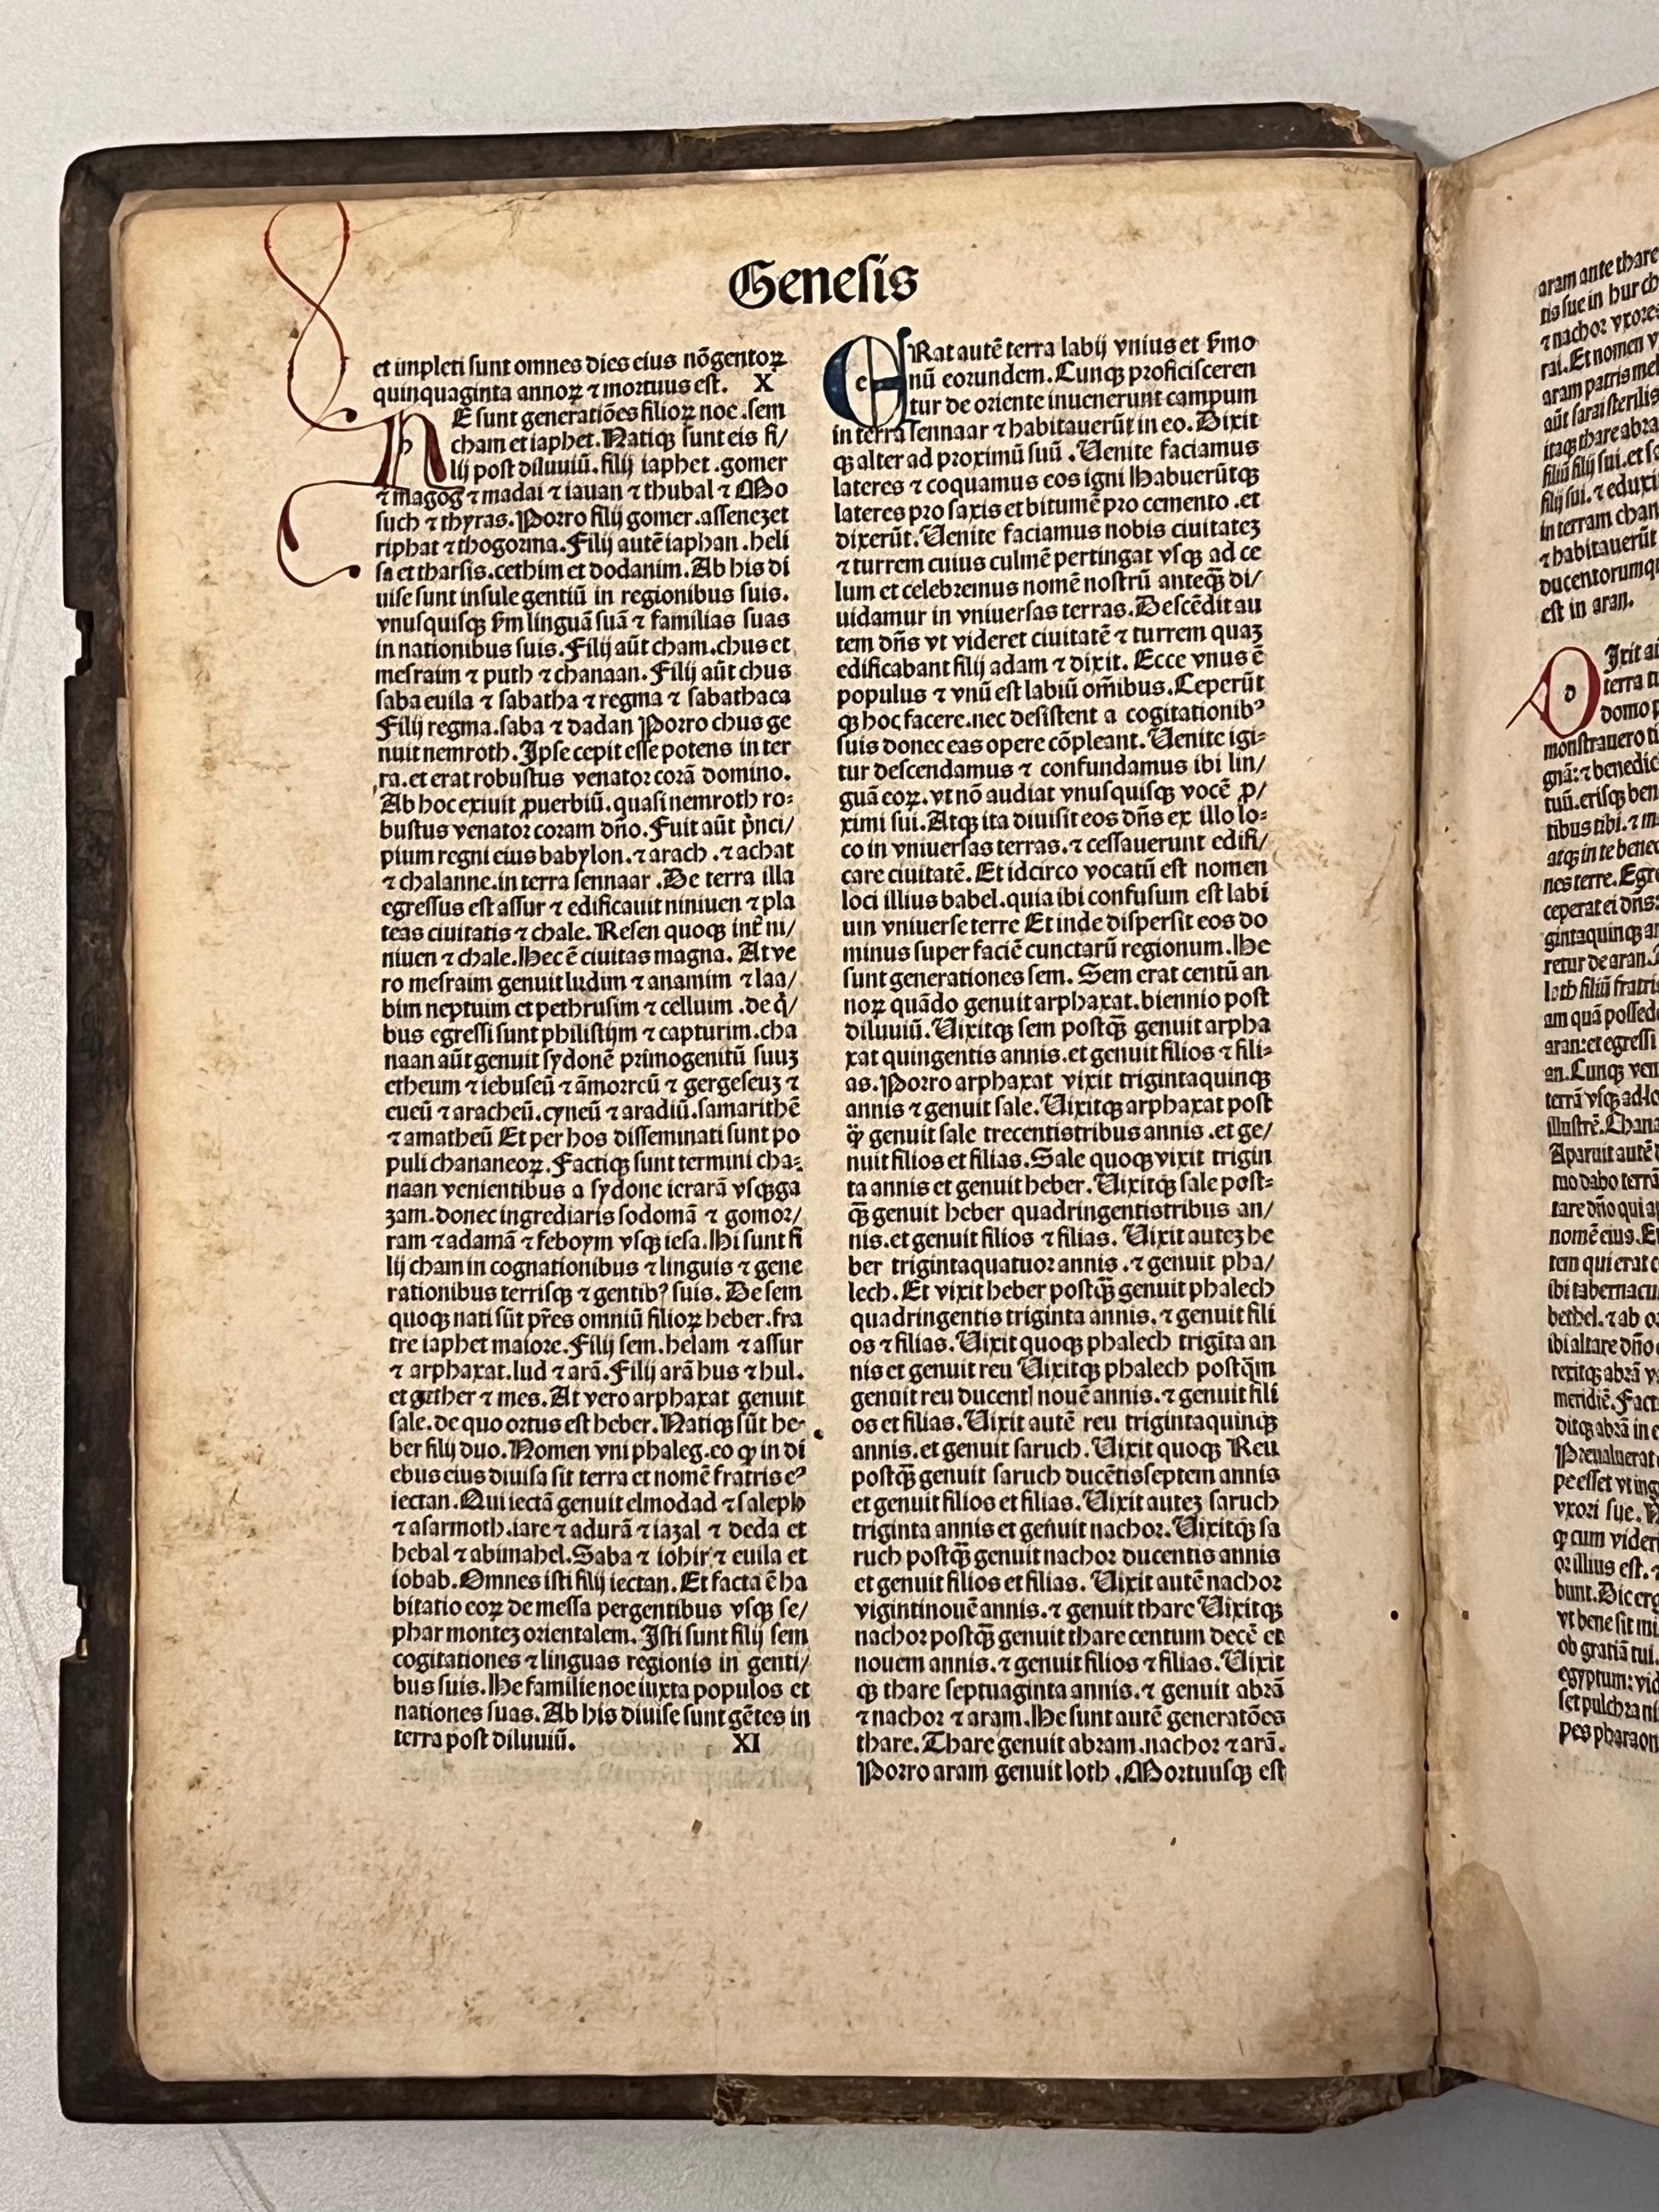 Genesis
et impleti sunt omnes dies eius nōgentoꝝ
quinquaginta annoꝝ ⁊ mortuus est. X
hE sunt generatiões filioꝝ noe .sem
cham et iaphet. Natiqꝫ sunt eis fi/
lij post diluuiū. filij iaphet .gomer
⁊ magog ⁊ madai ⁊ iauan ⁊ thubal ⁊ Mo
such ⁊ thyras. Porro filij gomer .assenezet
riphat ⁊ thogorma. Filij autē iaphan .heli
sa et tharsis. cethim et dodanim. Ab his di
uise sunt insule gentiū in regionibus suis.
vnusquisqꝫ ẜm linguā suā ⁊ familias suas
in nationibus suis. Filij aūt cham. chus et
mesraim ⁊ puth ⁊ chanaan. Filij aūt chus
saba euila ⁊ sabatha ⁊ regma ⁊ sabathaca
Filij regma. saba ⁊ dadan Porro chus ge
nuit nemroth. Ipse cepit esse potens in ter
ra. et erat robustus venator corā domino.
Ab hoc exiuit ꝓuerbiū. quasi nemroth ro⸗
bustus venator coram dn̄o. Fuit aūt pͥnci/
pium regni eius babylon. ⁊ arach .⁊ achat
⁊ chalanne. in terra sennaar .De terra illa
egressus est assur ⁊ edificauit niniuen ⁊ pla
teas ciuitatis ⁊ chale. Resen quoqꝫ int̄ ni/
niuen ⁊ chale. Hec ē ciuitas magna. At ve
ro mesraim genuit ludim ⁊ anamim ⁊ laa/
bim neptuim et pethrusim ⁊ celluim .de qͥ/
bus egressi sunt philistijm ⁊ capturim. cha
naan aūt genuit sydonē primogenitū suuꝫ
etheum ⁊ iebuseū ⁊ āmorreū ⁊ gergeseuꝫ ⁊
eueū ⁊ aracheū. cyneū ⁊ aradiū. samarithē
⁊ amatheū Et per hos disseminati sunt po
puli chananeoꝝ. Factiqꝫ sunt termini cha⸗
naan venientibus a sydone ierarā vsqꝫ ga
zam. donec ingrediaris sodomā ⁊ gomor/
ram ⁊ adamā ⁊ seboym vsqꝫ iesa. Hi sunt fi
lij cham in cognationibus ⁊ linguis ⁊ gene
rationibus terrisqꝫ ⁊ gentibꝰ suis. De sem
quoqꝫ nati sūt pr̄es omniū filioꝝ heber. fra
tre iaphet maiore. Filij sem. helam ⁊ assur
⁊ arphaxat. lud ⁊ arā. Filij arā hus ⁊ hul.
et gether ⁊ mes. At vero arphaxat genuit
sale. de quo ortus est heber. Natiqꝫ sūt he⸗
ber filij duo. Nomen vni phaleg. eo ꝙ in di
ebus eius diuisa sit terra et nomē fratris eꝰ
iectan. Qui iectā genuit elmodad ⁊ saleph
⁊ asarmoth. iare ⁊ adurā ⁊ iazal ⁊ deda et
hebal ⁊ abimahel. Saba ⁊ iohir ⁊ euila et
iobab. Omnes isti filij iectan. Et facta ē ha
bitatio eoꝝ de messa pergentibus vsqꝫ se/
phar monteꝫ orientalem. Isti sunt filij sem
cogitationes ⁊ linguas regionis in genti/
bus suis. He familie noe iuxta populos et
nationes suas. Ab his diuise sunt gētes in
terra post diluuiū. XI
eRat autē terra labij vnius et ẜmo
nū eorundem. Cunqꝫ proficisceren
tur de oriente inuenerunt campum
in terra sennaar ⁊ habitauerūt in eo. Dixit
qꝫ alter ad proximū suū .Uenite faciamus
lateres ⁊ coquamus eos igni Habuerūtqꝫ
lateres pro saxis et bitumē pro cemento .et
dixerūt. Uenite faciamus nobis ciuitateꝫ
⁊ turrem cuius culmē pertingat vsqꝫ ad ce
lum et celebremus nomē nostrū anteqꝫ̄ di/
uidamur in vniuersas terras. Descēdit au
tem dn̄s vt videret ciuitatē ⁊ turrem quaꝫ
edificabant filij adam ⁊ dixit. Ecce vnus ē
populus ⁊ vnū est labiū om̄ibus. Ceperūt
qꝫ hoc facere. nec desistent a cogitationibꝰ
suis donec eas opere cōpleant. Uenite igi⸗
tur descendamus ⁊ confundamus ibi lin/
guā eoꝝ. vt nō audiat vnusquisqꝫ vocē ꝓ/
ximi sui. Atqꝫ ita diuisit eos dn̄s ex illo lo⸗
co in vniuersas terras. ⁊ cessauerūt edifi/
care ciuitatē. Et idcirco vocatū est nomen
loci illius babel. quia ibi confusum est labi
um vniuerse terre Et inde dispersit eos do
minus super faciē cunctarū regionum. He
sunt generationes sem. Sem erat centū an
noꝝ quādo genuit arphaxat. biennio post
diluuiū. Uixitqꝫ sem postqꝫ̄ genuit arpha
xat quingentis annis. et genuit filios ⁊ fili⸗
as. Porro arphaxat vixit trigintaquinqꝫ
annis ⁊ genuit sale. Uixitqꝫ arphaxat post
qꝫ̄ genuit sale trecentistribus annis .et ge/
nuit filios et filias. Sale quoqꝫ vixit trigin
ta annis et genuit heber. Uixitqꝫ sale post⸗
qꝫ̄ genuit heber quadringentistribus an/
nis. et genuit filios ⁊ filias. Uixit auteꝫ he
ber trigintaquatuor annis .⁊ genuit pha/
lech. Et vixit heber postqꝫ̄ genuit phalech
quadringentis triginta annis. ⁊ genuit fili
os ⁊ filias. Uixit quoqꝫ phalech trigīta an
nis et genuit reu Uixitqꝫ phalech postqꝫ̄m
genuit reu ducent| nouē annis. ⁊ genuit fili
os et filias. Uixit autē reu trigintaquinqꝫ
annis. et genuit saruch. Uixit quoqꝫ Reu
postqꝫ̄ genuit saruch ducētisseptem annis
et genuit filios et filias. Uixit auteꝫ saruch
triginta annis et genuit nachor. Uixitqꝫ sa
ruch postqꝫ̄ genuit nachor ducentis annis
et genuit filios et filias. Uixit autē nachor
vigintinouē annis. ⁊ genuit thare Uixitqꝫ
nachor postqꝫ̄ genuit thare centum decē et
nouem annis. ⁊ genuit filios ⁊ filias. Uixit
qꝫ thare septuaginta annis. ⁊ genuit abrā
⁊ nachor ⁊ aram. He sunt autē generatōes
thare. Thare genuit abram. nachor ⁊ arā.
Porro aram genuit loth .Mortuusqꝫ est
aram ante thare
tis sue in hur ch
⁊ nachor vxores
rai. Et nomen v
aram patris mel
aūt sarai sterilis
itaqꝫ thare abra
filiū filij sui. et s
filij sui. ⁊ eduxi
in terram chan
⁊ habitauerūt
ducentorumq
est in aran.
dIxit au
terra tu
domo p
monstrauero ti
gnā: ⁊ benedic
tuū. erisqꝫ ben
tibus tibi. ⁊ m
atqꝫ in te bene
nes terre. Egre
ceperat ei dn̄s:
gintaquinqꝫ an
retur de aran.
loth filiū fratris
am quā possed
aran: et egressi
an. Cunqꝫ ven
terrā vsqꝫ ad lo
illustrē. Chana
Aparuit autē d
tuo dabo terrā
tare dn̄o qui ap
nomē eius. E
tem qui erat c
ibi tabernacu
bethel. ⁊ ab o
ibi altare dn̄o
rexitqꝫ abrā v
meridiē. Fact
ditqꝫ abrā in e
Preualuerat
pe esset vt ing
vxori sue. N
ꝙ cum vider
or illius est. ⁊
bunt. Dic erg
vt bene sit mi
ob gratiā tui.
egyptum: vid
set pulchra ni
pes pharaon